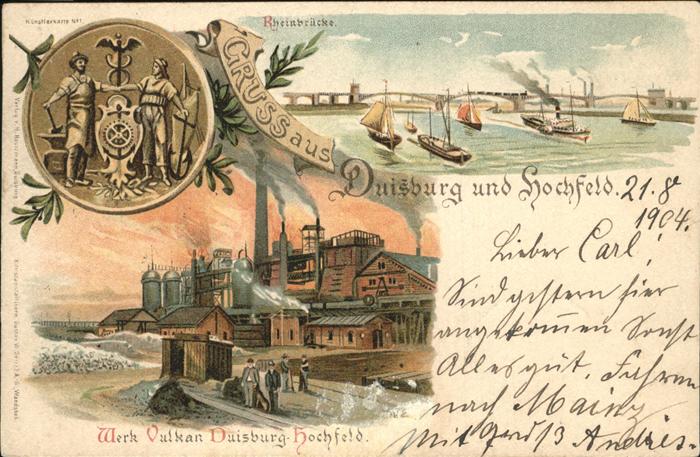 Künstlerkarte No 1.
Rheinbrücke.
GRUSS aus
Duisburg und Hochfeld.
21.8
1904.
Lieber Carl!
Sind gestern hier
angekommen Sonst
Alles gut, Fahren
nach Mainz
Mit Gruß Andres.
Werk Vulkan Duisburg-Hochfeld.